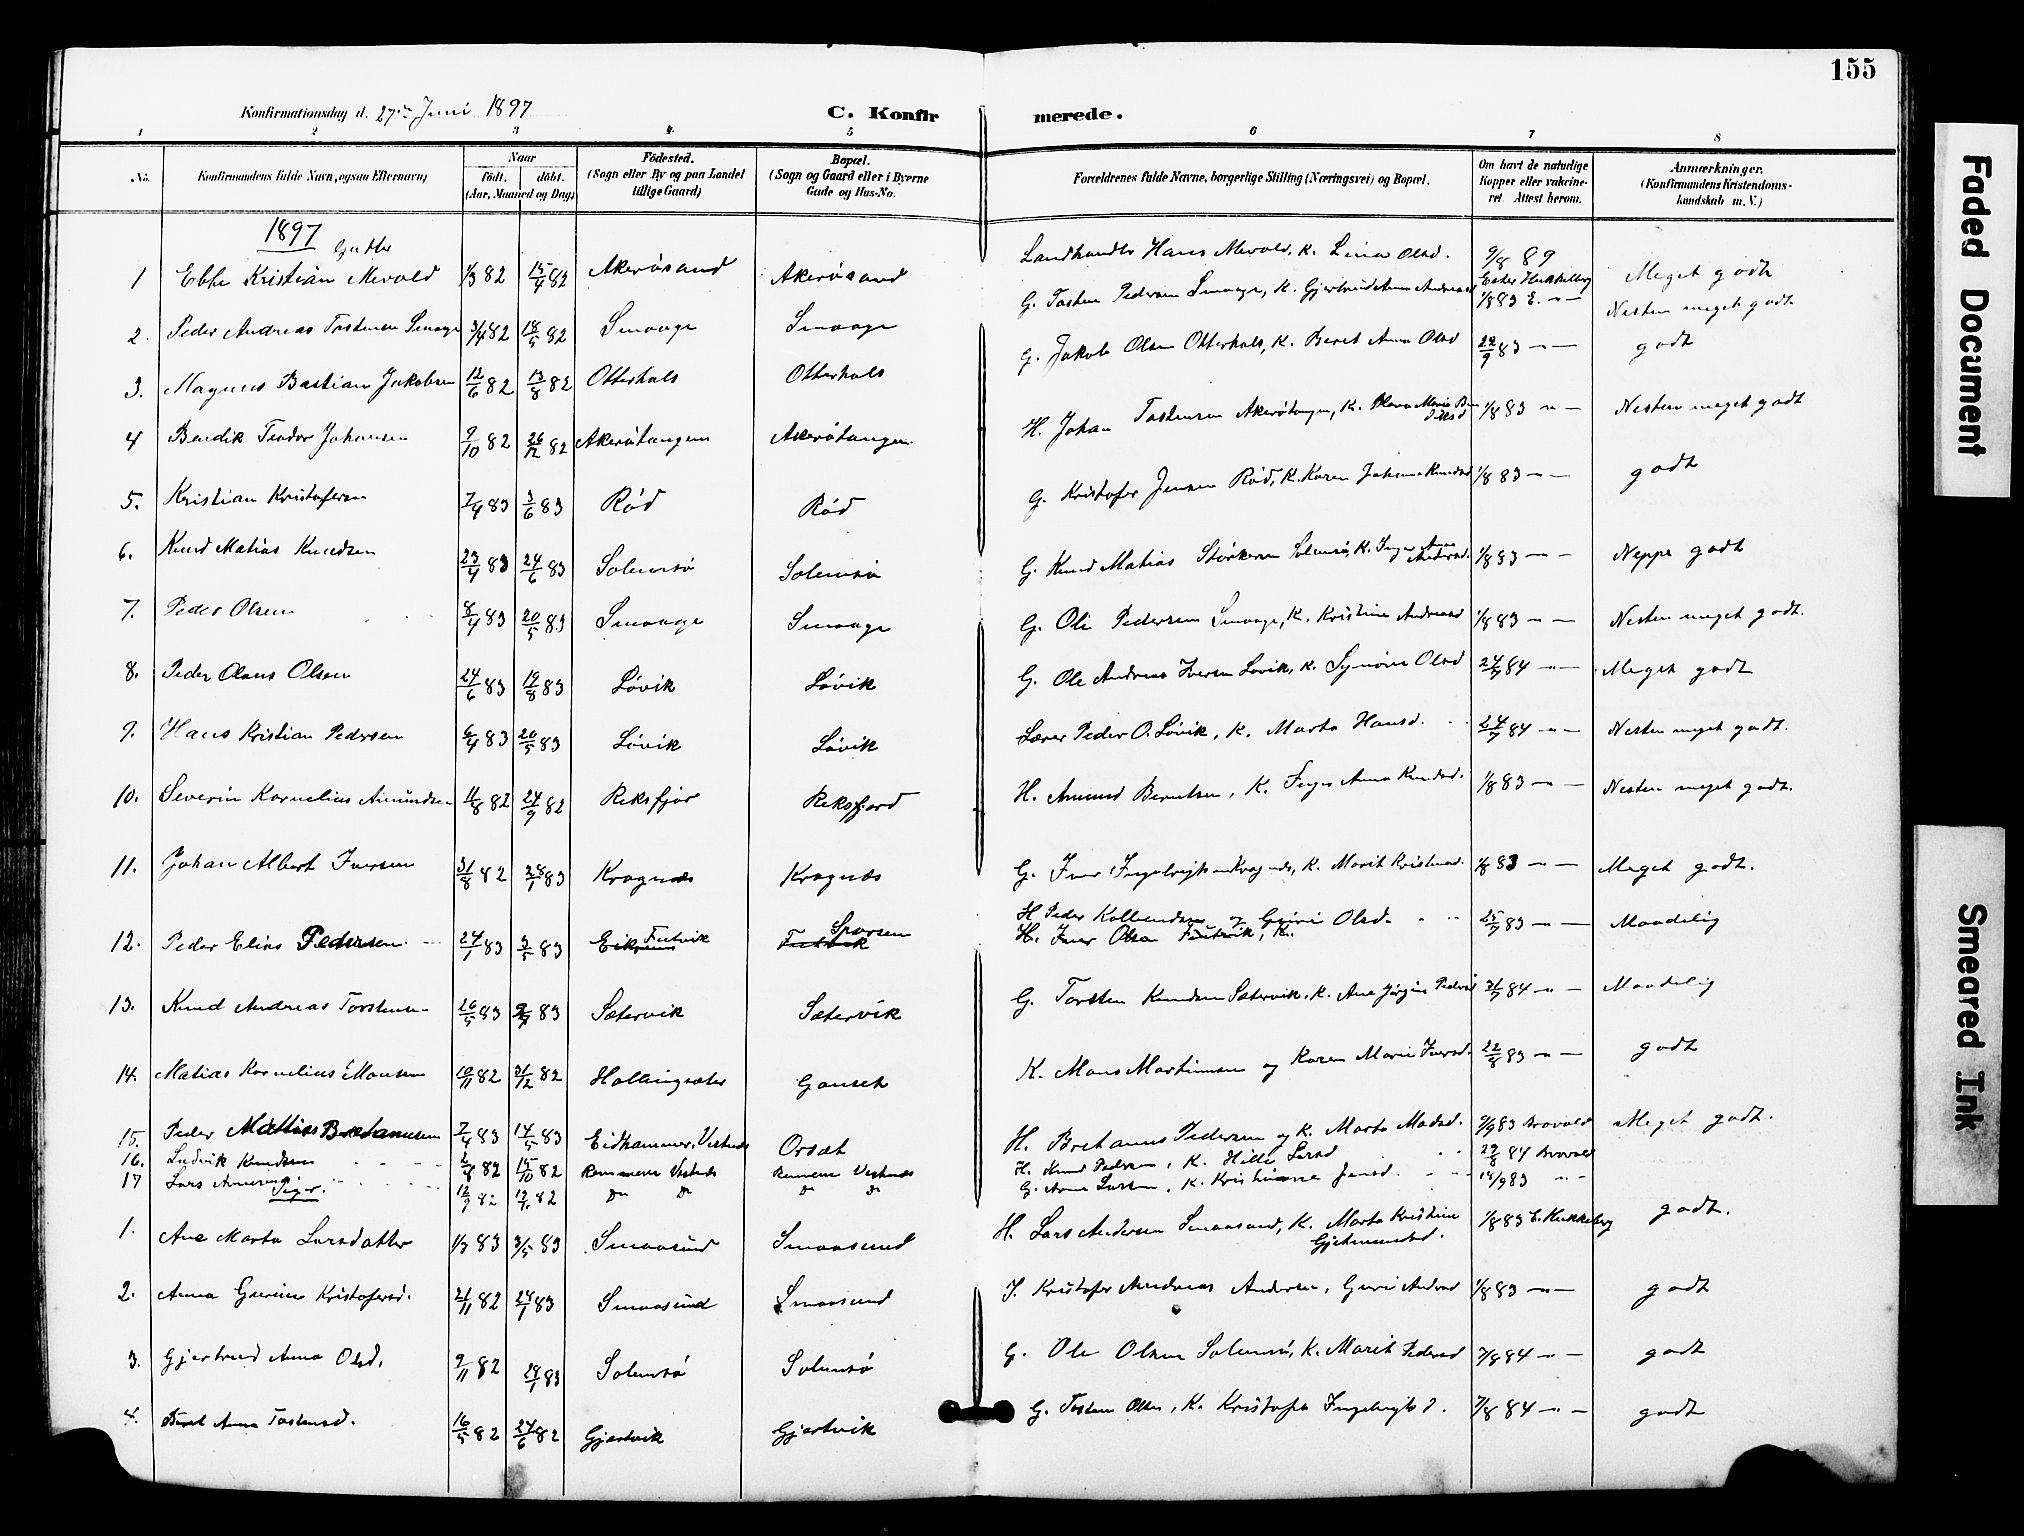 155
Konfirmationsdag d. 27de Juni 1897
C. Konfirmerede.
1 2 3 4 5 6 7 8
No.
Konfirmandens fulde Navn, ogsaa Efternavn)
Naar
födt. döbt.
(Aar, Maaned og Dag)
Födested.
(Sogn eller By og paa Landet tillige Gaard)
Bopæl.
(Sogn og Gaard eller i Byerne Gade og Hus-No.
Forældrenes fulde Navne, borgerlige Stilling (Næringsvei) og Bopæl.
Om havt de naturlige Kopper eller vakcineret. Attest herom.
Anmærkninger.
(Konfirmandens Kristendomskundskab m. V.)
1897
Gutter
1 Ebbe Kristian Mevold 1/3 82 15/4 82 Akerösand Akerösand Landhandler Hans Mevold, K. Lina Olsd. 9/8 89 Meget godt
2. Peder Andreas Tostensen Smaage 3/4 82 18/5 82 Smaage Smaage G. Tosten Pedersen Smaage, K. Gjertrud Anna Andreasd 1/8 83 E. " — Nesten meget godt
3. Magnus Bastian Jakobsen 12/6 82 13/8 82 Otterhals Otterhals G. Jakob Olsen Otterhals, K. Beret Anna Olsd 22/9 83 " — godt
4 Bendik Teodor Johansen 9/10 82 26/12 82 Akerötangen Akerötangen H. Johan Tostensen Akerötangen, K. Maria 1/8 83 " — Nesten meget godt
5. Kristian Kristofersen 7/4 83 3/6 83 Röd Röd G. Kristofer Jensen Röd, K. Karen Johanna Knudsd 1/8 83 " — godt
6. Knud Matias Knudsen 23/4 83 24/6 83 Solemsö Solemsö G. Knud Matias Störkersen Solemsö, K. Inger Anna Andersd. 1/8 83 " — Neppe godt
7. Peder Olsen 8/4 83 20/5 83 Smaage Smaage G. Ole Pedersen Smaage, K. Kristine Andreasd 1/8 83 " — Nesten meget godt.
8. Peder Olaus Olsen 24/6 83 19/8 83 Lövik Lövik G. Ole Andreas Iversen Lövik, K. Synöve Olsd 24/7 84 " — Meget godt
9. Hans Kristian Pedersen 6/4 83 20/5 83 Lövik Lövik Lærer Peder O. Lövik, K. Marta Hansd. 24/7 84 " — Nesten meget godt.
10. Severin Kornelius Amundsen 11/8 82 24/9 82 Reksfjor Reksfjord H. Amund Berntsen, K. Inger Anna Knudsd. 1/8 83 " — Nesten meget godt.
11. Johan Albert Iversen 31/8 82 28/1 83 Kragnæs Kragnæs G. Iver Ingebrigtsen Kragnæs, K. Marit Kristensd. 1/8 83 " — Meget godt.
12. Peder Elias Pedersen 24/1 83 3/5 83 Futvik H. Peder og Guri Olsd. 25/7 83 " — Maadelig
H. Iver Olsen Futvik, K.
13. Knud Andreas Torstensen 26/5 83 83 Sætervik Sætervik G. Torsten Knudsen Sætervik, K. Ane Jörgine Pedersd 31/7 84 " — Maadelig
14. Matias Kornelius Monsen 10/11 82 31/12 82 Hollingsæter Gauset K. Mons Martinusen og Karen Marie Iversd. 22/8 83 " — godt
15. Peder Mathias Bretanusen 7/4 83 14/5 83 Eidhammer, Vestnes Orsæt H. Bretanus Pedersen og K. Marta Madsd. 9/9 83 Brovold Meget godt.
16. Ludvik Knudsen 2/8 82 15/10 82 Remmem Vestnæs Remmem Vestnæs H. Knud Pedersen, K. Larsd 29/8 84 Brovold
17 Lars Arnesen 12/9 82 82 Do Do Do Do G. Arne Larsen, K. Kristianne Jensd. 14/9 83 " "
Piger.
1. Ane Marta Larsdatter 1/3 83 3/5 83 Smaasund Smaasund H. Lars Andersen Smaasund, K. Marta Kristine Gjetmundsd. 1/8 83 E. Hukkelberg godt.
2. Anna Gurine Kristofersd. 21/11 82 24/1 83 Smaasund Smaasund J. Kristofer Andreas Andersen, Guri Andersd 1/8 83 " — godt
3. Gjertrud Anna Olsd. 9/11 82 28/1 83 Solemsö Solemsö G. Ole Olsen Solemsö, K. Marit Pedersd 7/8 84 " — godt
4. Beret Anna Tostensd. 16/5 82 24/6 82 Gjertvik Gjertvik G. Tosten Olsen, K. Ingebrigtsd. 7/8 84 " — godt
Faded Document
Smeared Ink